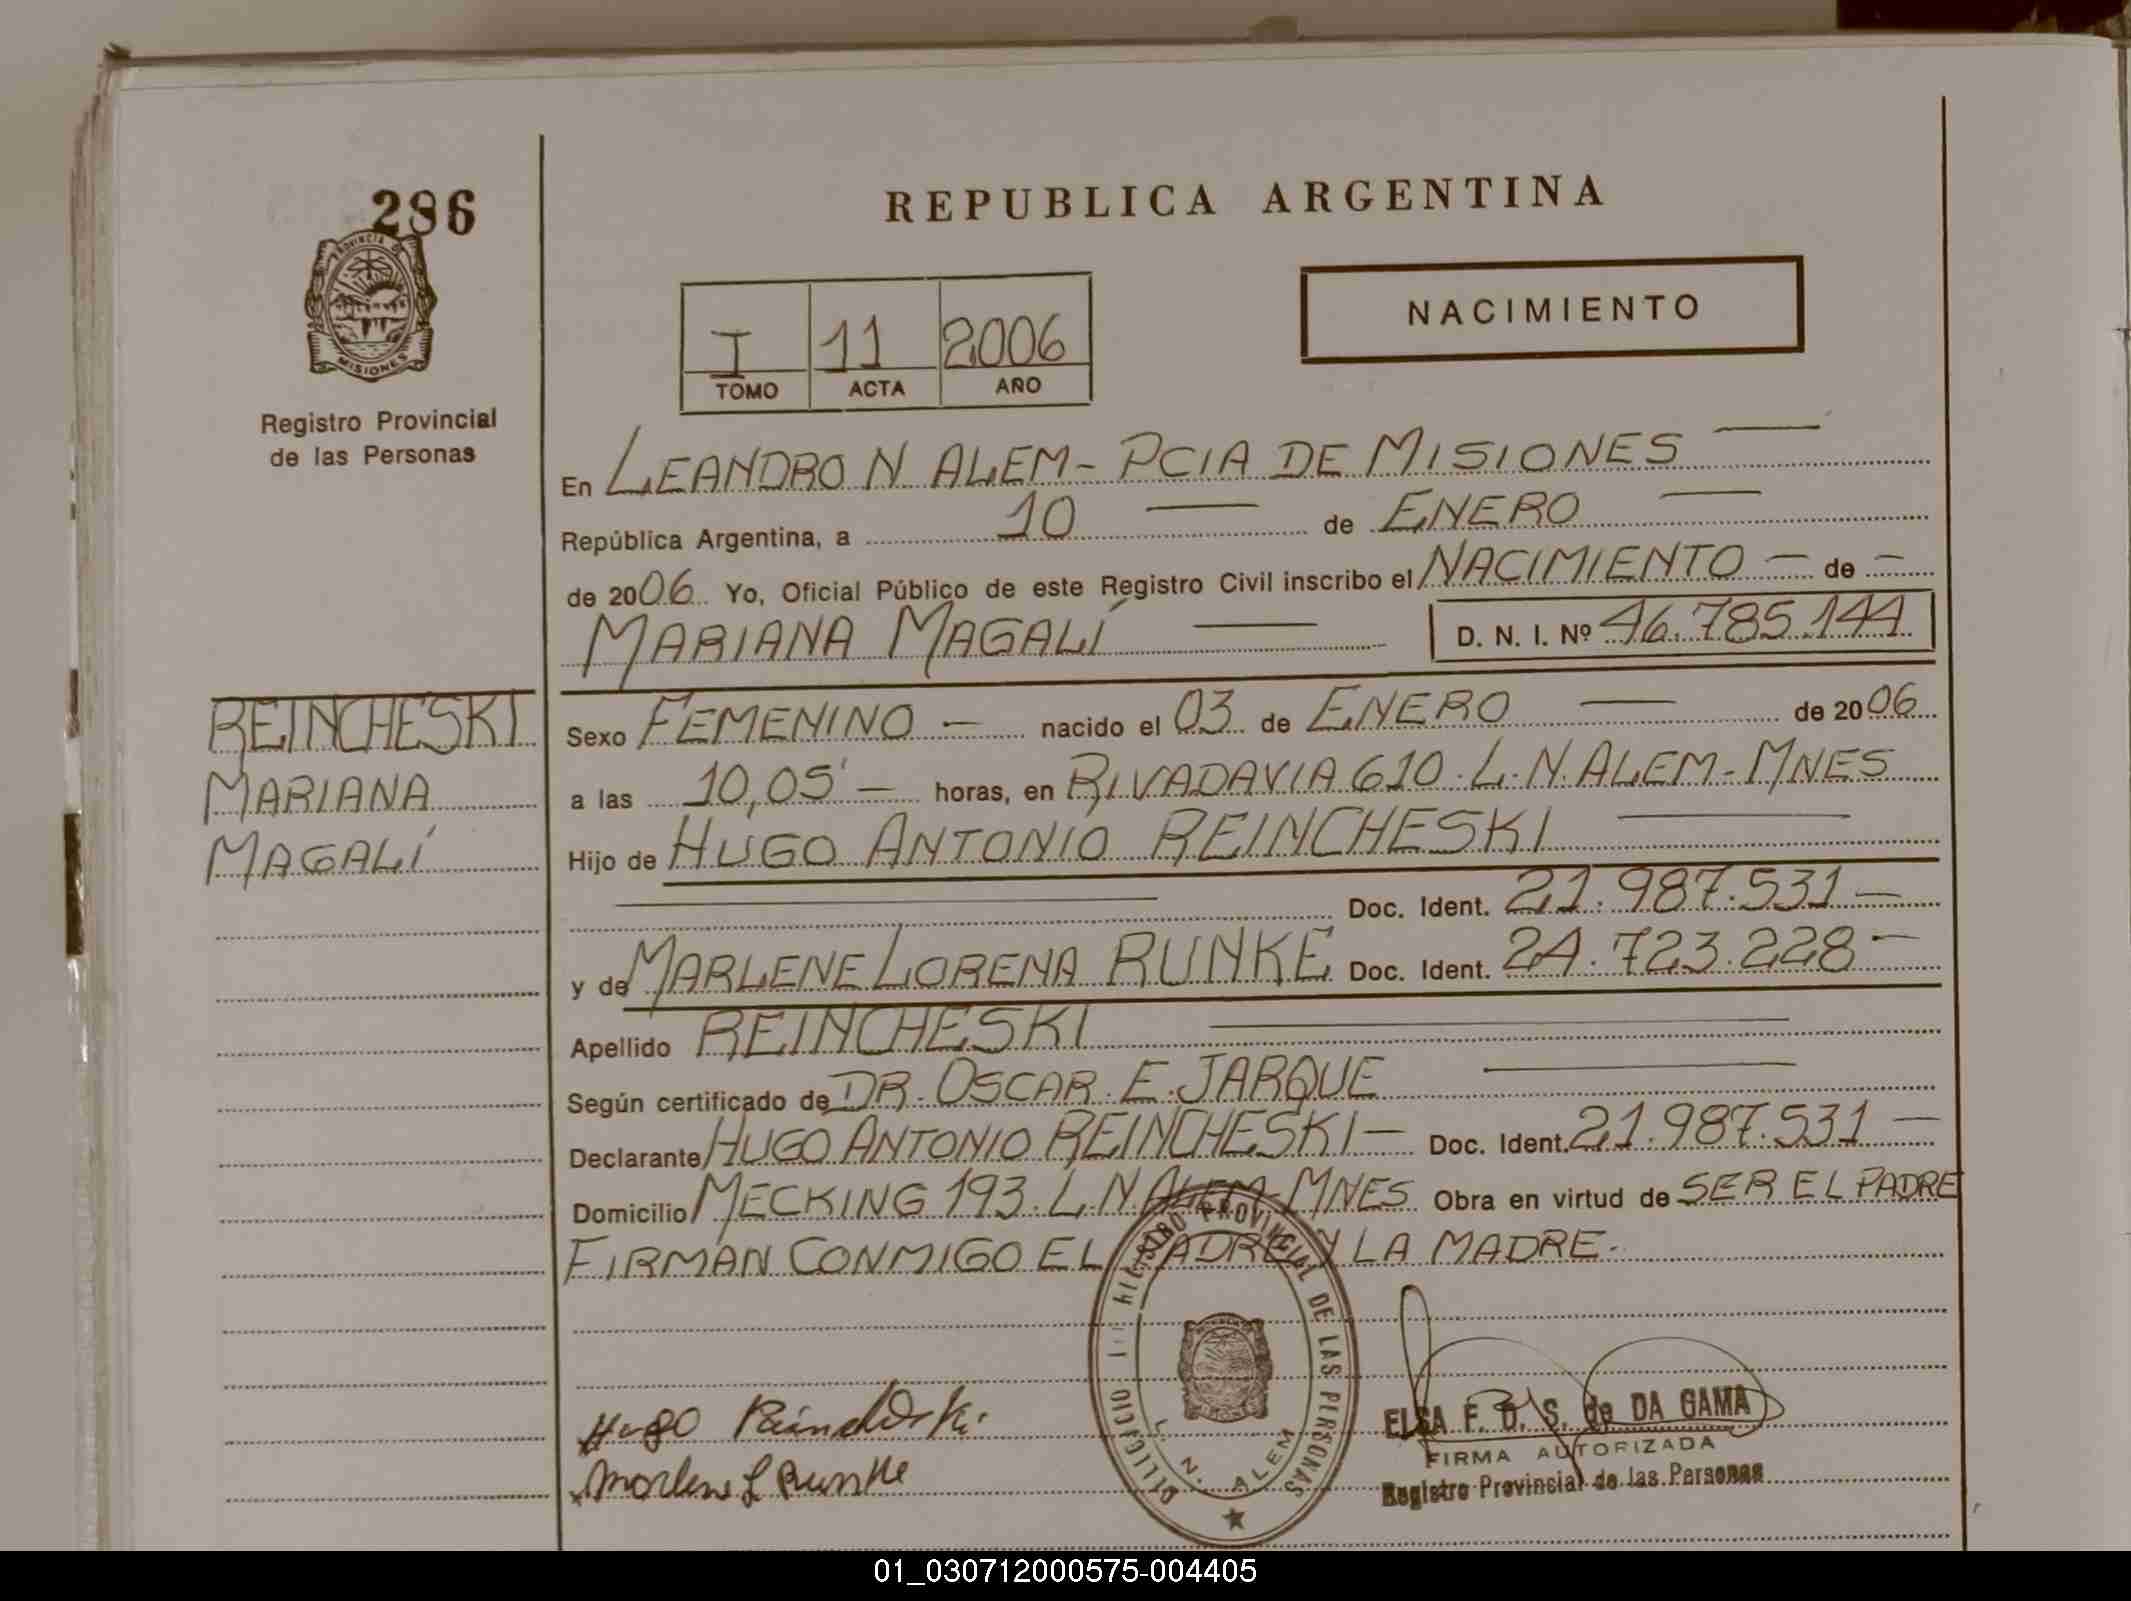 286
PROVINCIA DE
MISIONES
Registro Provincial
de las Personas
REPUBLICA ARGENTINA
NACIMIENTO
I 11 2006
TOMO ACTA AÑO
En LEANDRO N. ALEM - PCIA DE MISIONES —
República Argentina, a 10 — de ENERO —
de 2006. Yo, Oficial Público de este Registro Civil inscribo el NACIMIENTO — de —
MARIANA MAGALÍ — D. N. I. Nº 46.785.144
REINCHESKI
MARIANA
MAGALÍ
Sexo FEMENINO — nacido el 03 de ENERO — de 2006
a las 10,05' — horas, en RIVADAVIA 610. L. N. ALEM - MNES
Hijo de HUGO ANTONIO REINCHESKI —
— Doc. Ident. 21.987.531 —
y de MARLENE LORENA RUNKE Doc. Ident. 24.723.228 —
Apellido REINCHESKI —
Según certificado de DR. OSCAR E. JARQUE —
Declarante HUGO ANTONIO REINCHESKI — Doc. Ident. 21.987.531 —
Domicilio MECKING 193. L. N. ALEM - MNES Obra en virtud de SER EL PADRE
FIRMAN CONMIGO EL PADRE Y LA MADRE.
REGISTRO PROVINCIAL DE LAS PERSONAS
L. N. ALEM
Hugo Reincheski
Marlene L Runke
ELSA F. D. S. de DA GAMA
FIRMA AUTORIZADA
Registro Provincial de las Personas
01_030712000575-004405